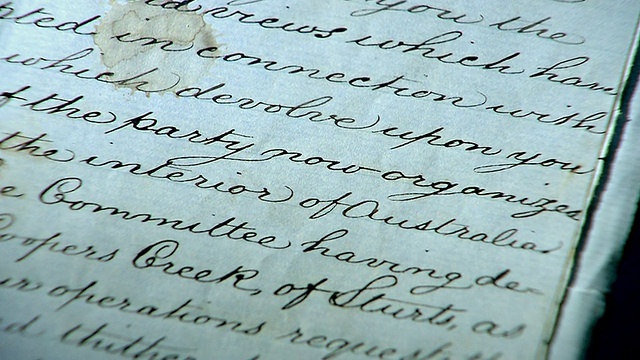 you the
views which have
in connection with
which devolve upon you
the party now organizes
the interior of Australia
Committee having de-
Coopers Creek, of Sturts, as
operations request
thither